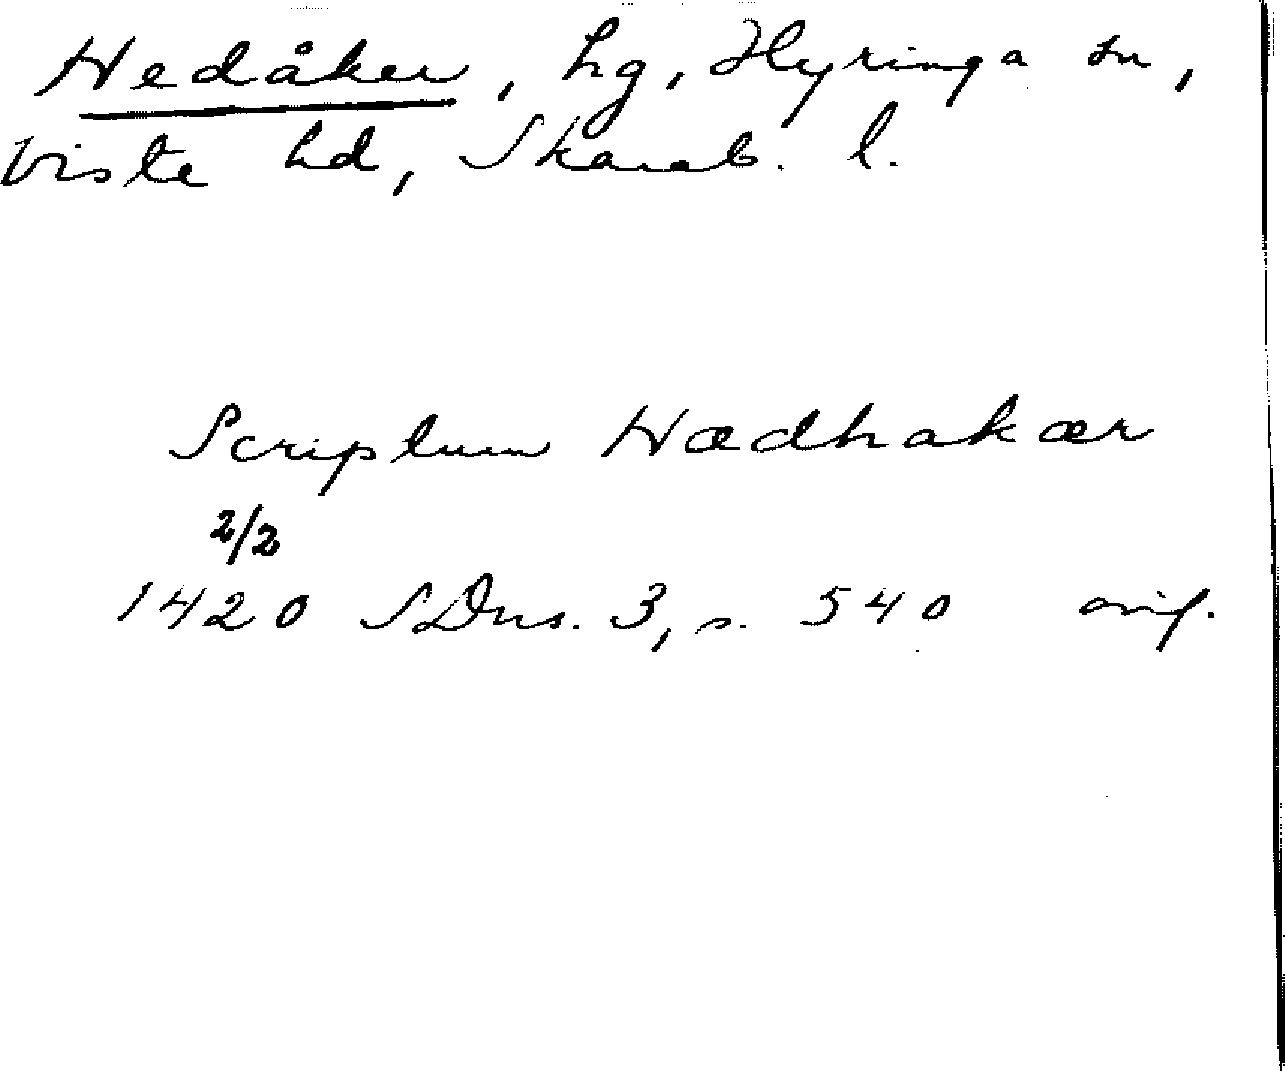 Hedåker, hg, Hyringa sn,
Viste hd, Skarab. l.
Scriptum Hædhakær
2/2
1420 SDns. 3, s. 540 orig.